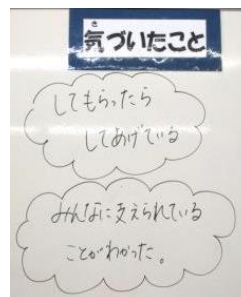 き
気づいたこと
してもらったら
してあげている
みんなに支えられている
ことがわかった。